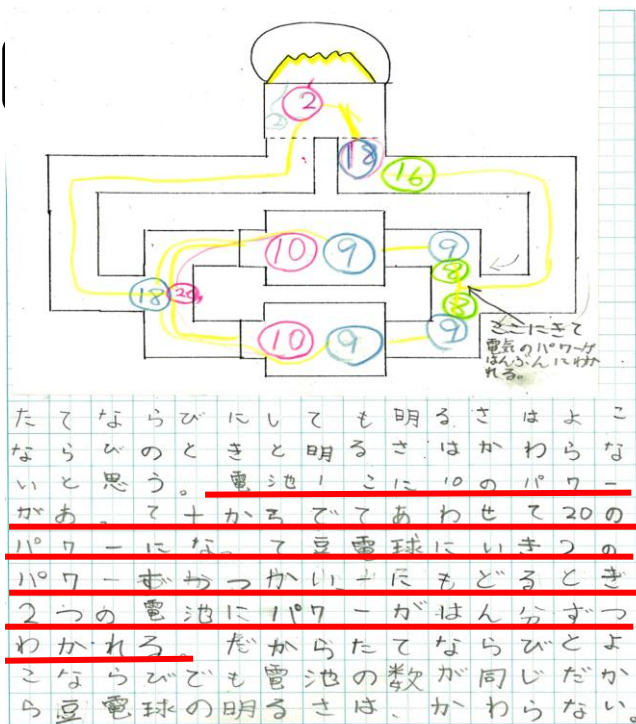 2
2
18
16
10 9 9
8
18 20
8
10 9 9
ここにきて
電気のパワーが
はんぶんにわか
れる。
たてならびにしても明るさはよこ
ならびのときと明るさはかわらな
いと思う。電池1こに10のパワー
があって+からでてあわせて20の
パワーになって豆電球にいき2の
パワーつかい-にもどるとき
2つの電池にパワーがはん分ずつ
わかれる。だからたてならびとよ
こならびでも電池の数が同じだか
ら豆電球の明るさは、かわらない